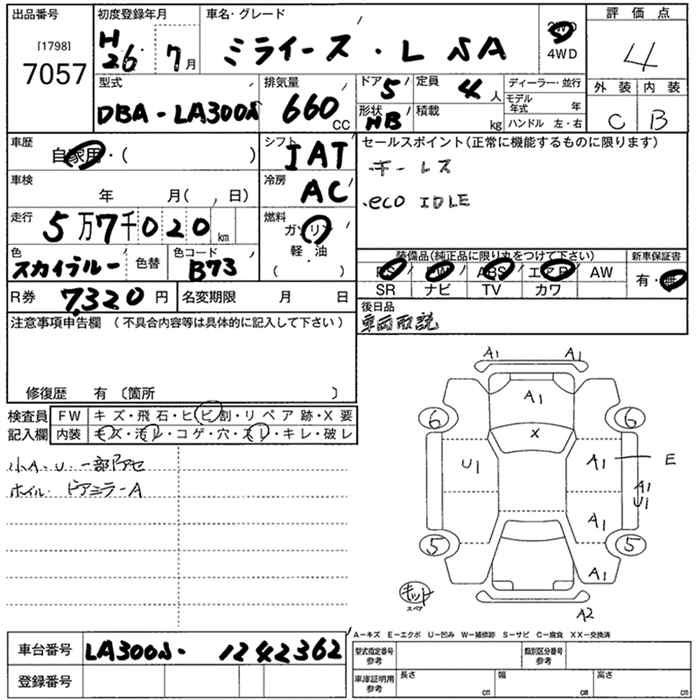 出品番号 初度登録年月 車名・グレード 評価点
[1798]
7057
H26年 7月
ミライース・L SA
2WD
4WD
4
型式 排気量 ドア 5 定員 4人 ディーラー・並行
DBA-LA300S 660cc
形状 HB 積載 kg
モデル年式 年
ハンドル 左・右
外装 内装
C B
車歴 自家用・( )
シフト IAT
セールスポイント(正常に機能するものに限ります)
・キーレス
・eco IDLE
車検 年 月( , 日)
冷房 AC
走行 5万7千020km
燃料 ガソリン
軽・油
( )
色 スカイブルー 色替 色コード B73
装備品(純正品に限り丸をつけて下さい) 新車保証書
PS PW ABS エアB AW
SR ナビ TV カワ
有・無
R券 7,320円 名変期限 月 日
後日品
車両取説
注意事項申告欄 (不具合内容等は具体的に記入して下さい)
修復歴 有 〔箇所 〕
検査員記入欄
FW キズ・飛石・ヒビ割・リペア跡・X要
内装 キズ・汚レ・コゲ・穴・スレ・キレ・破レ
小A.U.一部アセ
ホイル・ドアミラーA
A1 A1
A1
6 6
X
U1 A1 E
A1
U1
A1
5 5
A1
A2
キット
スペア
A-キズ E-エクボ U-凹み W-補修跡 S-サビ C-腐食 XX-交換済
車台番号 LA300S-1242362
登録番号
型式指定番号 参考 類別区分番号 参考
車庫証明用 参考 長さ cm 幅 cm 高さ cm